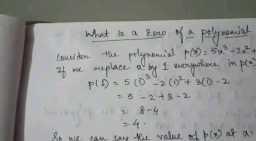 What is a Zero of a polynomial
Consider the polynomial p(x) = 5x³ - 2x² +
If we replace x by 1 everywhere in p(x)
p(1) = 5(1)³ - 2(1)² + 3(1) - 2
= 5 - 2 + 3 - 2
= 8 - 4
= 4.
So we can say the value of p(x) at x =